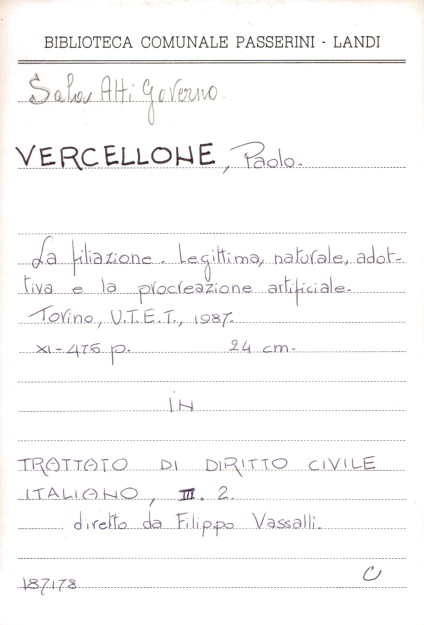 BIBLIOTECA COMUNALE PASSERINI - LANDI
Sala Atti Governo.
VERCELLONE, Paolo.
La filiazione. Legittima, naturale, adot-
tiva e la procreazione artificiale.
Torino, U.T.E.T., 1987.
XI-475 p. 24 cm.
IN
TRATTATO DI DIRITTO CIVILE
ITALIANO, III. 2.
diretto da Filippo Vassalli.
C
187178